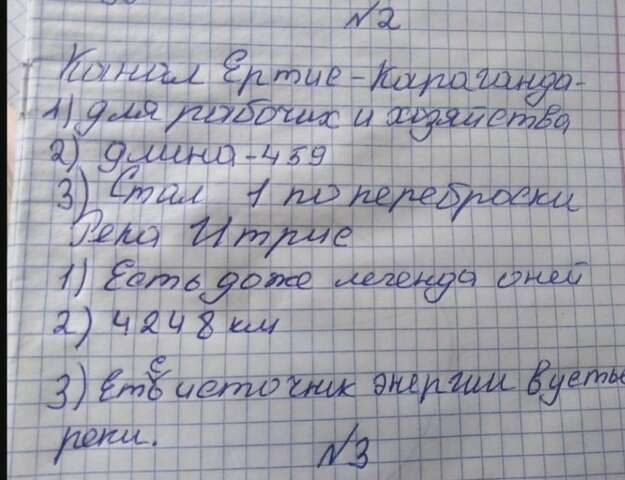 №2
Канал Ертис-Караганда-
1) для рабочих и хозяйства
2) длина-459
3) Стал 1 по переброски
Река Итрис
1) Есть даже легенда оней
2) 4248 км
3) Есть источник энергии в устье
реки.
№3